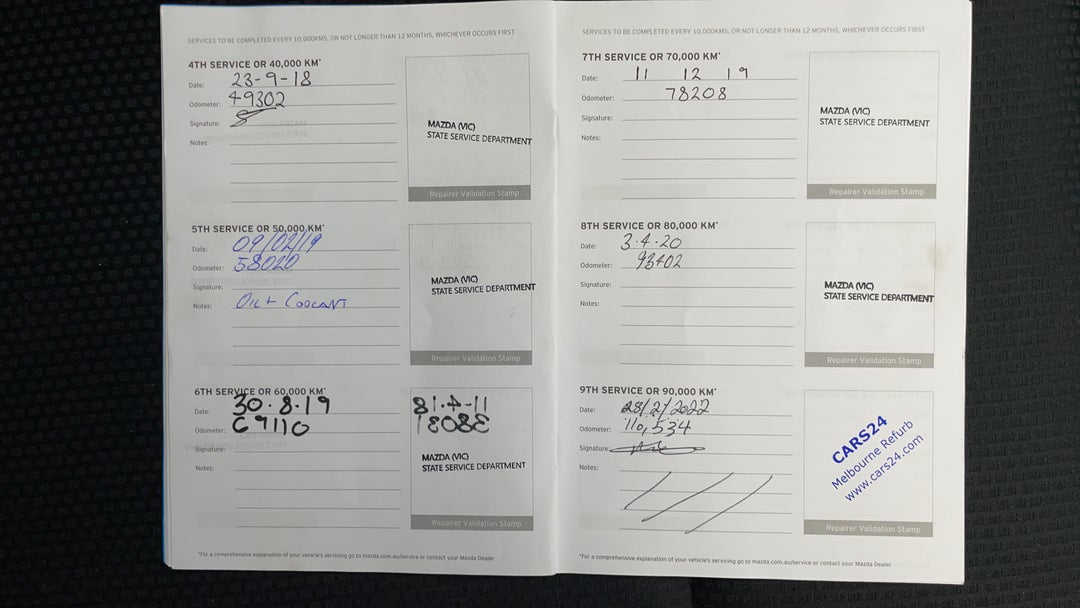 SERVICES TO BE COMPLETED EVERY 10,000KMS, OR NOT LONGER THAN 12 MONTHS, WHICHEVER OCCURS FIRST
4TH SERVICE OR 40,000 KM*
Date: 23-9-18
Odometer: 49302
Signature:
Notes:
MAZDA (VIC)
STATE SERVICE DEPARTMENT
Repairer Validation Stamp
5TH SERVICE OR 50,000 KM*
Date: 09/02/19
Odometer: 58020
Signature:
Notes: OIL + COOLANT
MAZDA (VIC)
STATE SERVICE DEPARTMENT
Repairer Validation Stamp
6TH SERVICE OR 60,000 KM*
Date: 30.8.19
Odometer: 69110
Signature:
Notes:
MAZDA (VIC)
STATE SERVICE DEPARTMENT
Repairer Validation Stamp
*For a comprehensive explanation of your vehicle's servicing go to mazda.com.au/service or contact your Mazda Dealer
SERVICES TO BE COMPLETED EVERY 10,000KMS, OR NOT LONGER THAN 12 MONTHS, WHICHEVER OCCURS FIRST
7TH SERVICE OR 70,000 KM*
Date: 11 12 19
Odometer: 78208
Signature:
Notes:
MAZDA (VIC)
STATE SERVICE DEPARTMENT
Repairer Validation Stamp
8TH SERVICE OR 80,000 KM*
Date: 3.4.20
Odometer: 93402
Signature:
Notes:
MAZDA (VIC)
STATE SERVICE DEPARTMENT
Repairer Validation Stamp
9TH SERVICE OR 90,000 KM*
Date: 28/2/2022
Odometer: 110,534
Signature:
Notes:
CARS24
Melbourne Refurb
www.cars24.com
Repairer Validation Stamp
*For a comprehensive explanation of your vehicle's servicing go to mazda.com.au/service or contact your Mazda Dealer